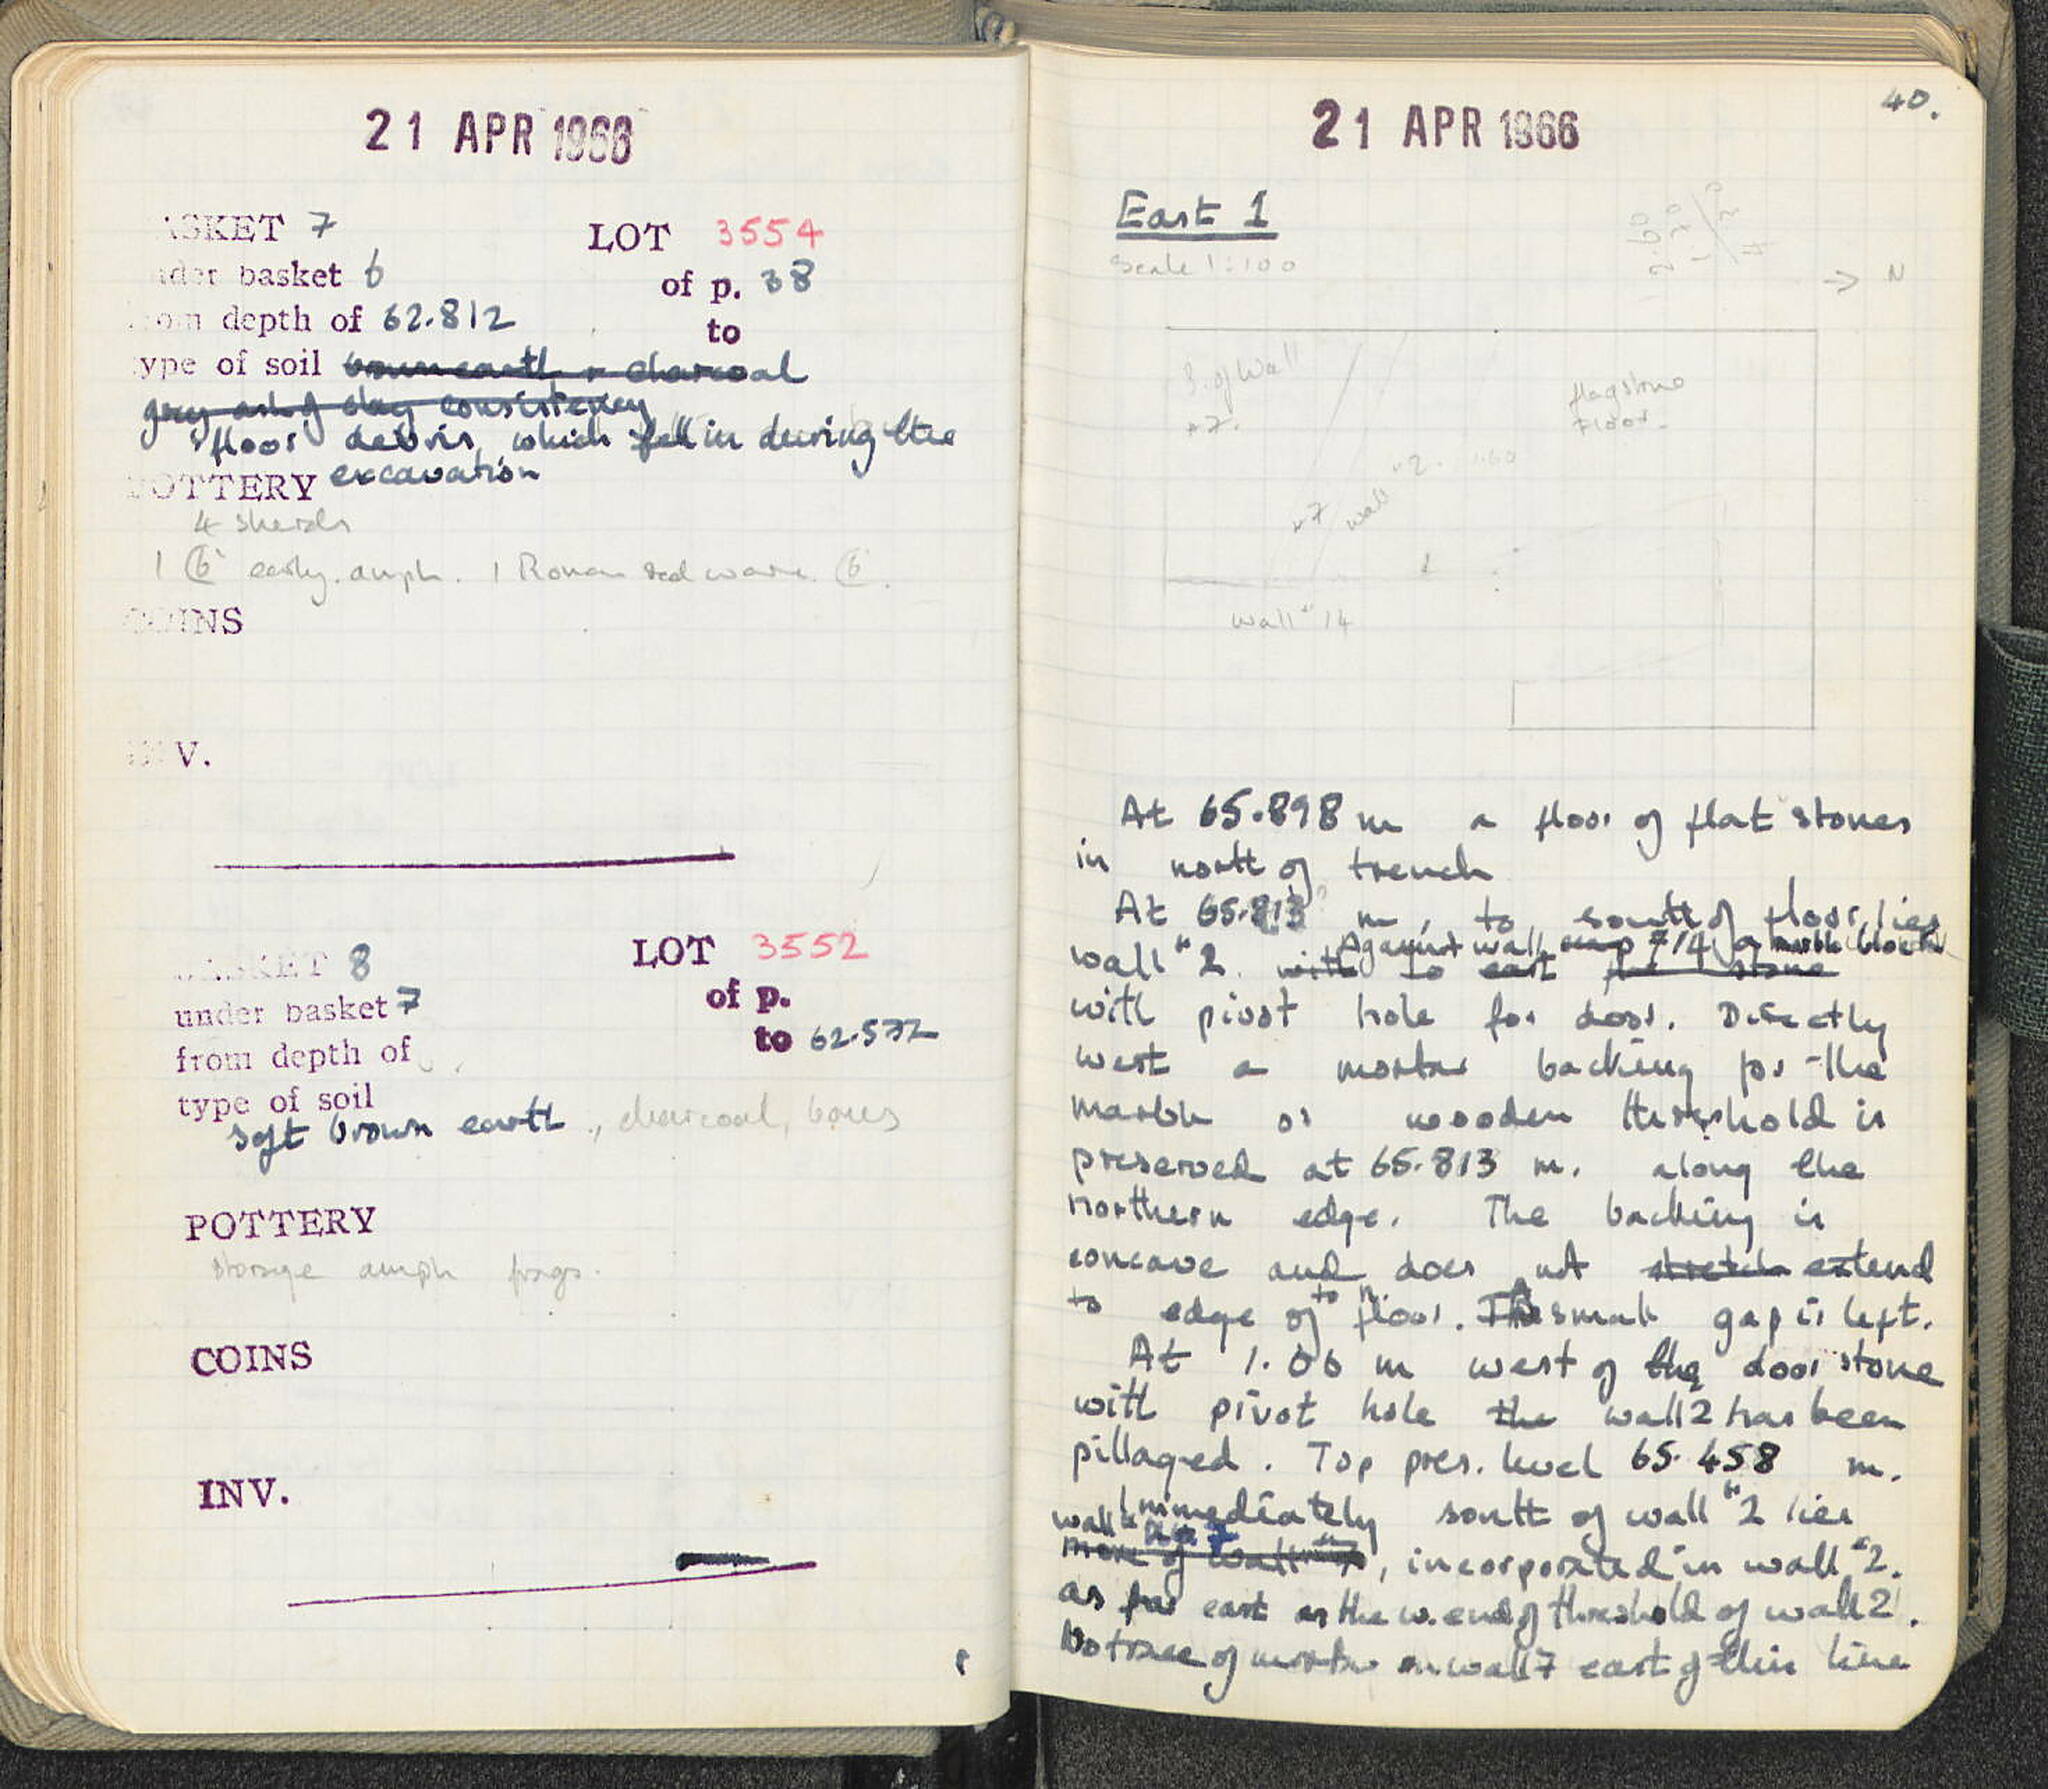 21 APR 1966
BASKET 7 LOT 3554
under basket 6 of p. 38
from depth of 62.812 to
type of soil brown earth + charcoal
grey ash of clay consistency
floor debris, which fell in during the
excavation
POTTERY
4 sherds
1 ⑥ early. amph. 1 Roman red ware. ⑥.
COINS
INV.
BASKET 8 LOT 3552
under basket 7 of p.
from depth of to 62.532
type of soil
soft brown earth, charcoal, bones
POTTERY
storage amph frags.
COINS
INV.
40.
21 APR 1966
East 1
Scale 1:100
→ N
S. of Wall
#7.
flagstone
Floor.
wall #2.
#7
wall #14
At 65.898 m a floor of flat stones
in north of trench
At 65.813 m, to south of floor, lies
wall #2. with to east
Against wall #14 a marble block
with pivot hole for door. Directly
west a mortar backing for the
marble or wooden threshold is
preserved at 65.813 m. along the
northern edge. The backing is
concave and does not stretch extend
to edge of floor. A small gap is left.
to n.
At 1.06 m west of the door stone
with pivot hole the wall 2 has been
pillaged. Top pres. level 65.458 m.
Immediately south of wall #2 lies
wall #7
more of wall, incorporated in wall #2.
as far east as the w. end of threshold of wall 2.
No trace of mortar on wall 7 east of this line